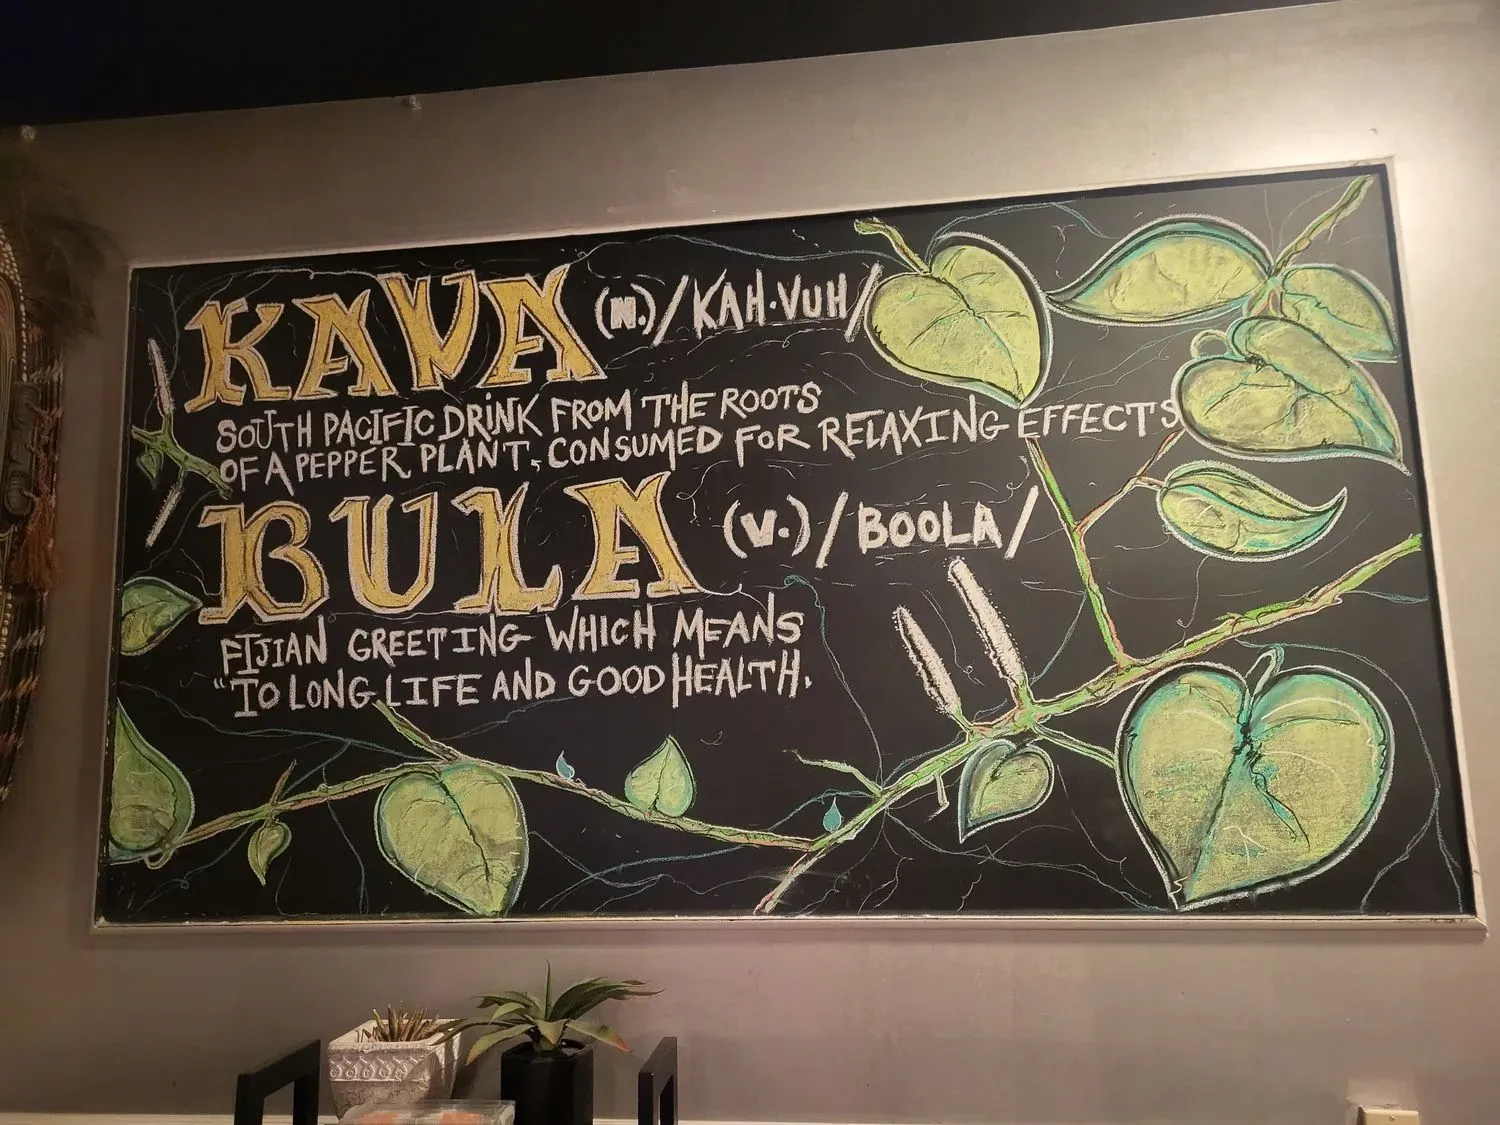 KAVA (N.) / KAH·VUH /
SOUTH PACIFIC DRINK FROM THE ROOTS
OF A PEPPER PLANT, CONSUMED FOR RELAXING EFFECTS
BULA (V.) / BOOLA /
FIJIAN GREETING WHICH MEANS
"TO LONG LIFE AND GOOD HEALTH.